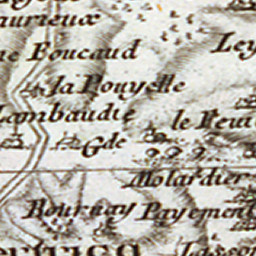 aurieux
Foucaud
Ley
la Pouyelle
Lambaudie
le Feui
Gde
Molardier
Bournay Payement